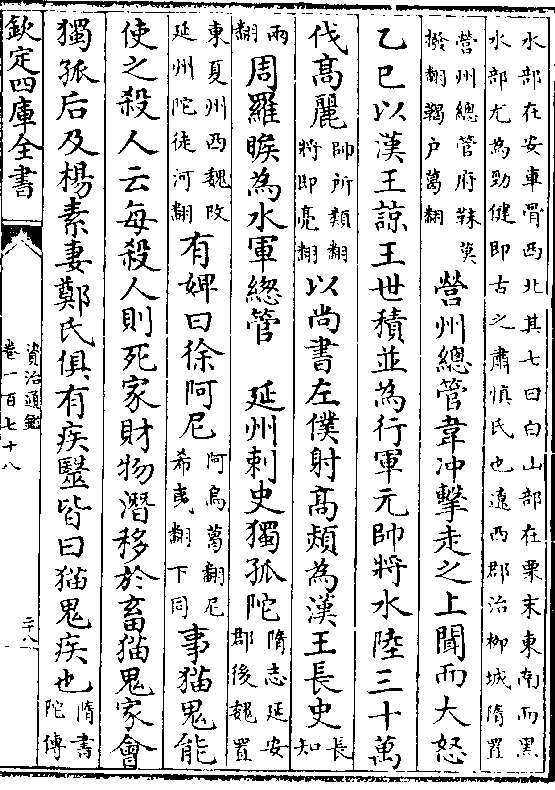 水部在安車骨西北其七曰白山部在粟末東南而黑
水部尤為勁健即古之肅慎氏也遼西郡治柳城隋置
營州總管府靺莫
撥翻鞨户葛翻
營州總管韋冲擊走之上聞而大怒
乙巳以漢王諒王世積並為行軍元帥將水陸三十萬
伐高麗
帥所類翻
將即亮翻
以尚書左僕射高熲為漢王長史
長
知
兩
翻
周羅睺為水軍總管 延州刺史獨孤陀
隋志延安
郡後魏置
東夏州西魏改
延州陀徒河翻
有婢曰徐阿尼
阿烏葛翻尼
希夷翻下同
事猫鬼能
使之殺人云每殺人則死家財物潛移於畜猫鬼家會
獨孤后及楊素妻鄭氏俱有疾醫皆曰猫鬼疾也
隋書
陀傳
欽定四庫全書
資治通鑑
卷一百七十八
三八